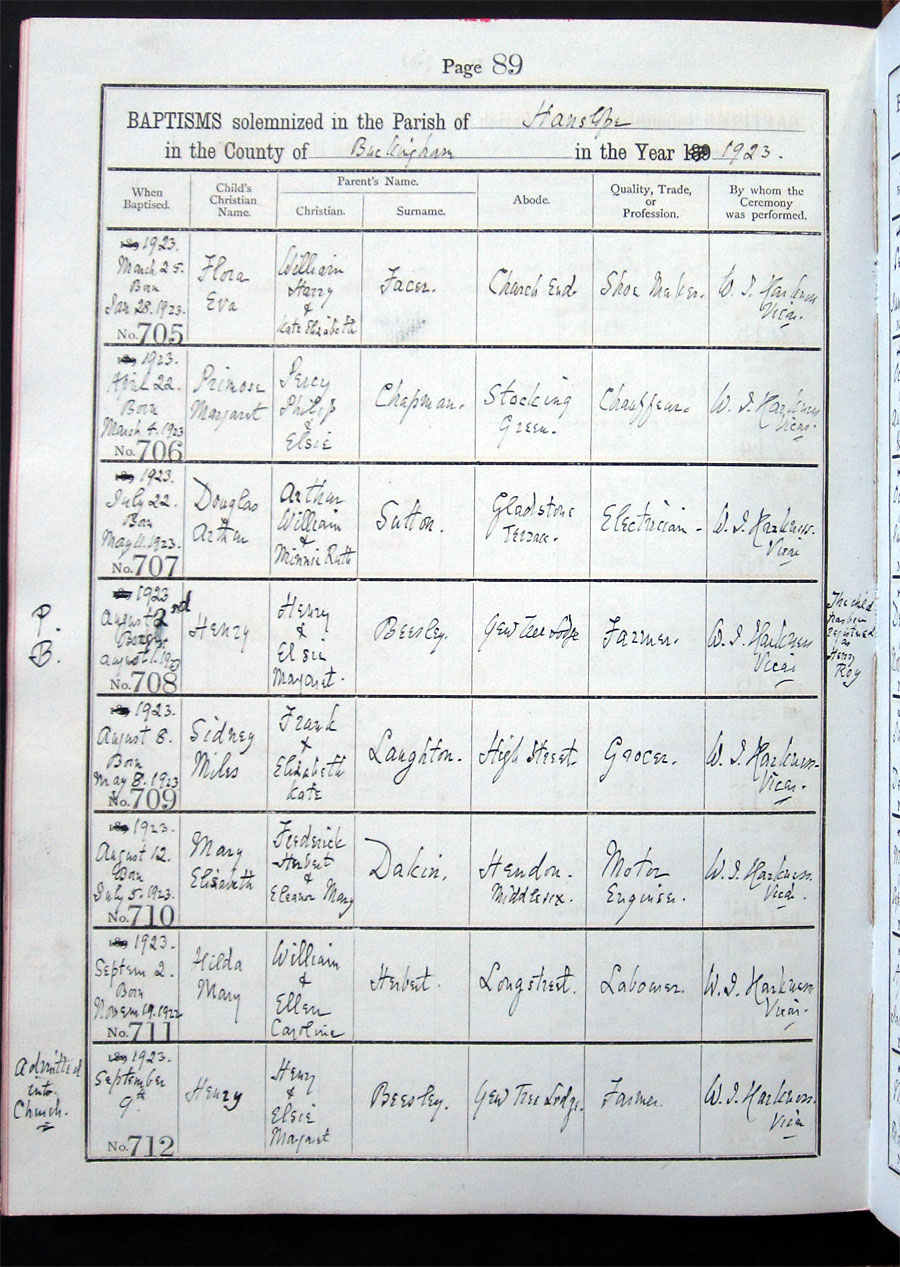 Page 89
BAPTISMS solemnized in the Parish of Hanslope
in the County of Buckingham in the Year 189 1923.
When Baptised.
Child's Christian Name.
Parent's Name.
Christian.
Surname.
Abode.
Quality, Trade, or Profession.
By whom the Ceremony was performed.
189 1923.
March 25.
Born
Jan 28. 1923.
No. 705
Flora
Eva
William
Harry
&
Kate Elizabeth
Facer.
Church End.
Shoe Maker.
W. J. Harkness
Vicar.
189 1923.
April 22.
Born
March 4. 1923
No. 706
Primose
Margaret
Percy
Philip
&
Elsie
Chapman.
Stocking
Green.
Chauffeur.
W. J. Harkness
Vicar.
189 1923.
July 22.
Born
May 11. 1923.
No. 707
Douglas
Arthur
Arthur
William
&
Minnie Ruth
Sutton.
Gladstone
Terrace.
Electrician -
W. J. Harkness.
Vicar
P.
B.
189 1923
August 2nd
Born
August 1. 1923
No. 708
Henry
Henry
&
Elsie
Margaret.
Beesley.
Yew Tree Lodge
Farmer.
W. J. Harkness
Vicar
The child
has been
registered
as
Henry
Roy
189 1923.
August 8.
Born
May 8. 1923
No. 709
Sidney
Miles
Frank
&
Elizabeth
Kate
Laughton.
High Street.
Grocer.
W. J. Harkness-
Vicar.
189 1923.
August 12.
Born
July 5. 1923.
No. 710
Mary
Elisabeth
Frederick
Herbert
&
Eleanor Mary
Dakin.
Hendon.
Middlesex.
Motor
Engineer.
W. J. Harkness
Vicar.
189 1923.
Septem 2.
Born
Novem 19. 1922
No. 711
Hilda
Mary
William
&
Ellen
Caroline
Herbert.
Longstreet.
Labourer.
W. J. Harkness
Vicar.
Admitted
into
Church.
189 1923.
September
9th
No. 712
Henry
Henry
&
Elsie
Margaret
Beesley.
Yew Tree Lodge.
Farmer
W. J. Harkness.
Vicar